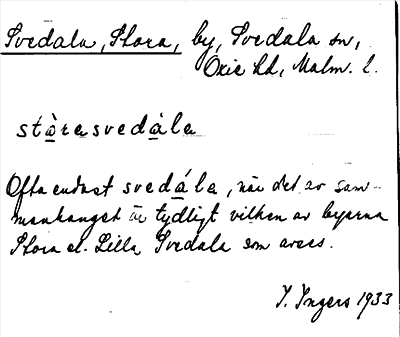 Svedala, Stora, by, Svedala sn,
Oxie hd, Malm. l.
stòrasvedàla
Ofta endast svedála, när det av sam-
manhanget är tydligt vilken av byarna
Stora el. Lilla Svedala som avses.
I. Ingers 1933